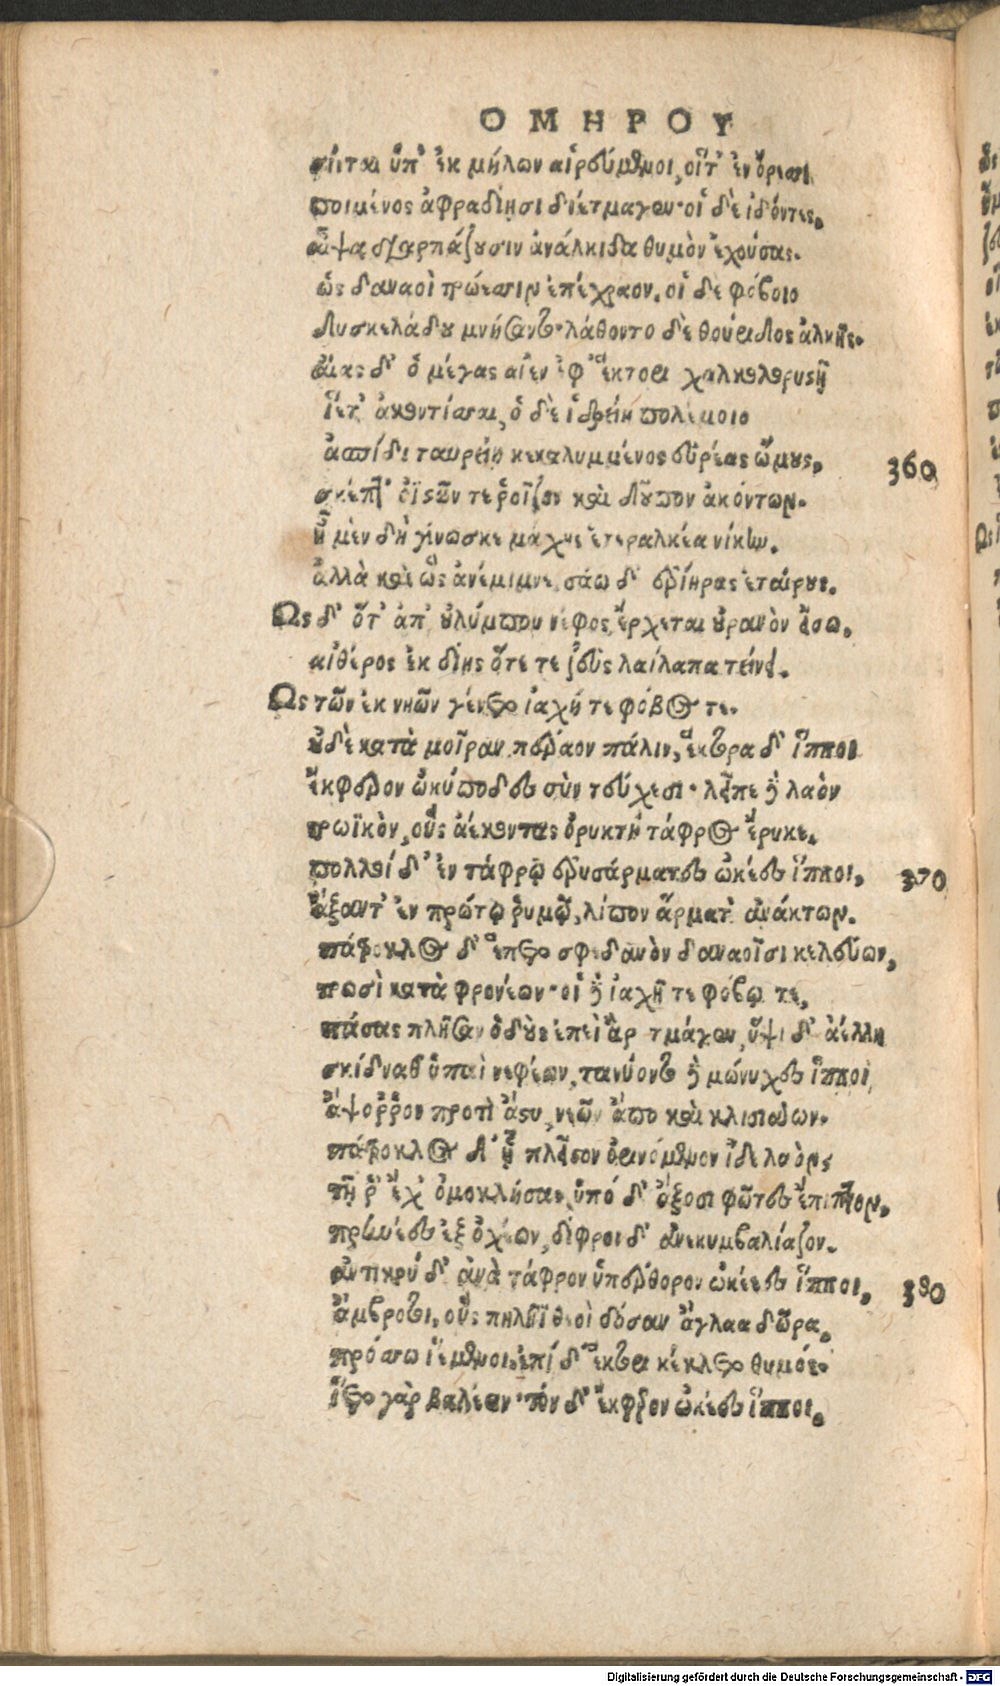 ΟΜΗΡΟΥ
σίνται ὑπ' ἐκ μήλων αἱρεύμενοι, οἵτ' ἐν ὄρεσσι
ποιμένος ἀφραδίῃσι διέτμαγεν· οἱ δὲ ἰδόντες,
αἶψα διαρπάζουσιν ἀνάλκιδα θυμὸν ἐχούσας.
ὣς δαναοὶ τρώεσσιν ἐπέχραον. οἱ δὲ φόβοιο
δυσκελάδου μνήσαντο· λάθοντο δὲ θούριδος ἀλκῆς.
αἴας δ' ὁ μέγας αἰὲν ἐφ' ἕκτορι χαλκοκορυστῇ
ἵετ' ἀκοντίσσαι, ὁ δὲ ἰδρείῃ πολέμοιο
ἀσπίδι ταυρείῃ κεκαλυμμένος εὐρέας ὤμους,
360
σκέπτετ' ὀϊστῶν τε ῥοῖζον καὶ δοῦπον ἀκόντων.
ἦ μὲν δὴ γίνωσκε μάχης ἑτεραλκέα νίκην.
ἀλλὰ καὶ ὧς ἀνέμιμνε, σάω δ' ἐρίηρας ἑταίρους.
Ὡς δ' ὅτ' ἀπ' οὐλύμπου νέφος ἔρχεται οὐρανὸν εἴσω,
αἰθέρος ἐκ δίης ὅτε τε ζεὺς λαίλαπα τείνει.
Ὣς τῶν ἐκ νηῶν γένετο ἰαχή τε φόβος τε.
οὐδὲ κατὰ μοῖραν πέραον πάλιν, ἕκτορα δ' ἵπποι
ἔκφερον ὠκύποδες σὺν τεύχεσι· λεῖπε δὲ λαὸν
τρωϊκὸν, οὓς ἀέκοντας ὀρυκτὴ τάφρος ἔρυκε.
πολλοὶ δ' ἐν τάφρῳ ἐρυσάρματες ὠκέες ἵπποι,
370
ἄξαντ' ἐν πρώτῳ ῥυμῷ, λίπον ἅρματ' ἀνάκτων.
πάτροκλος δ' ἕπετο σφεδανὸν δαναοῖσι κελεύων,
τρωσὶ κατὰ φρονέων· οἱ δὲ ἰαχῇ τε φόβῳ τε,
πάσας πλῆσαν ὁδοὺς ἐπεὶ ἂρ τμάγεν, ὕψι δ' ἀέλλη
σκίδναθ' ὑπαὶ νεφέων, τανύοντο δὲ μώνυχες ἵπποι
ἄψορρον προτὶ ἄστυ, νεῶν ἄπο καὶ κλισιάων.
πάτροκλος δ' ᾗ πλεῖστον ὀρινόμενον ἴδε λαὸν,
τῇ ῥ' ἔχ' ὁμοκλήσας, ὑπό δ' ἄξοσι φῶτες ἔπιπτον,
πρηνέες ἐξ ὀχέων, δίφροι δ' ἀνεκυμβαλίαζον.
ἀντικρύ δ' ἀνὰ τάφρον ὑπέρθορον ὠκέες ἵπποι,
380
ἄμβροτοι, οὓς πηλῆϊ θεοὶ δόσαν ἄγλαα δῶρα,
πρόσσω ἱέμενοι. ἐπί δ' ἕκτορι κέκλετο θυμός.
ἵετο γὰρ βαλέειν· τόν δ' ἔκφερον ὠκέες ἵπποι,
Digitalisierung gefördert durch die Deutsche Forschungsgemeinschaft - DFG